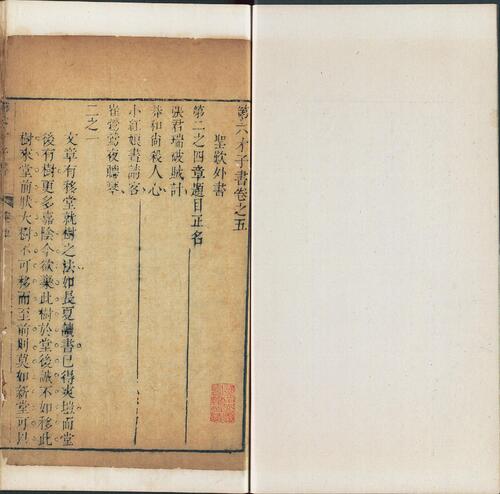 第六才子書卷之五
聖歎外書
第二之四章題目正名
張君瑞破賊計
莽和尚殺人心
小紅娘晝請客
崔鶯鶯夜聽琴
二之一
文章有移堂就樹之法如長夏讀書已得爽塏而堂
後有樹更多嘉陰今欲棄此樹於堂後誠不如移此
樹來堂前然大樹不可移而至前則莫如新堂可以